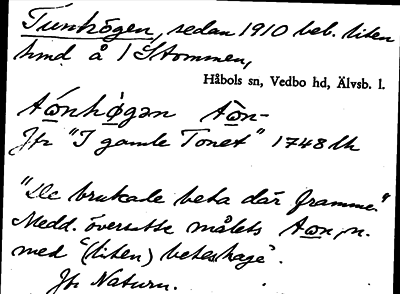 Tunhögen, sedan 1910 beb. liten
hmd å 1 Stommen,
Håbols sn, Vedbo hd, Älvsb. l.
Jfr "I gamle Tonet" 1748 lh
"De brukade beta där framme."
Medd. översatte målets n.
med "(liten) beteshage".
Jfr Naturn.